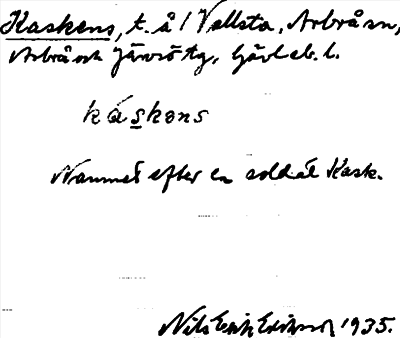 Kaskens, t. å 1 Vallsta, Arbrå sn,
Arbrå och Järvsö tg, Gävleb. l.
káskens
Namnet efter en soldat Kask.
Nils Erik Eriksson 1935.